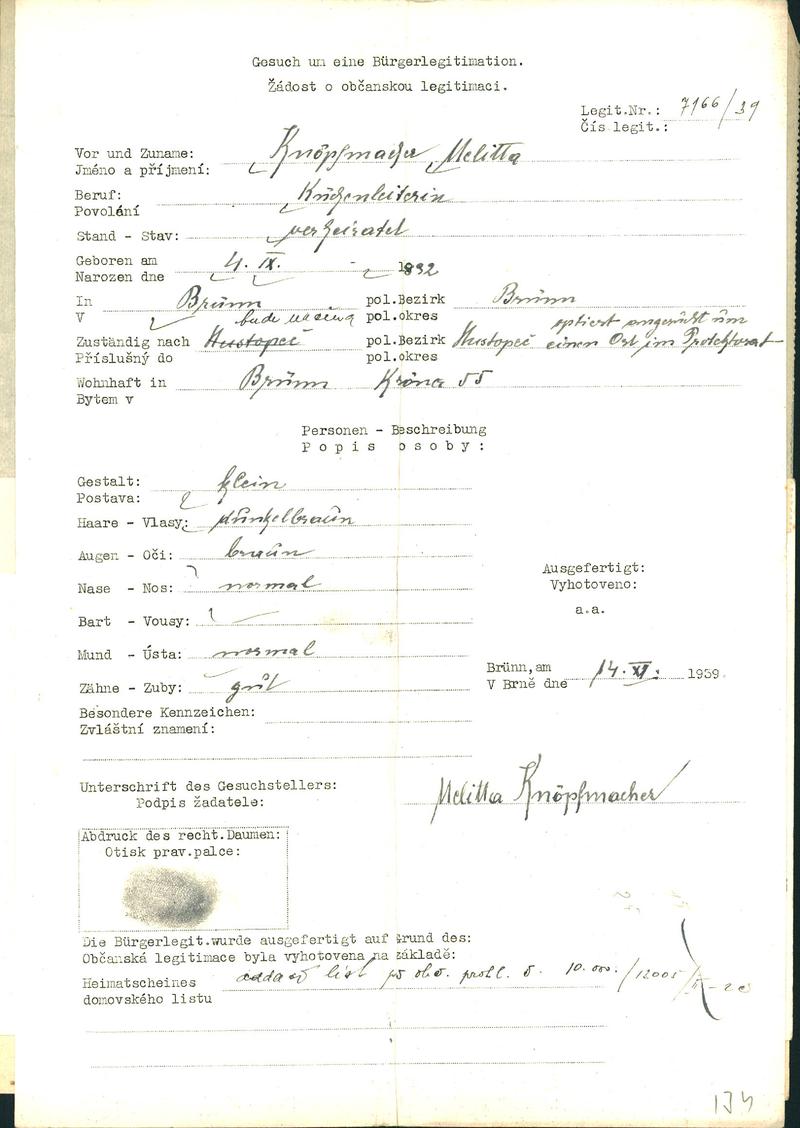 Gesuch um eine Bürgerlegitimation.
Žádost o občanskou legitimaci.
Legit.Nr.: 7166/39
Čís legit.:
Vor und Zuname: Knöpfmacher Melitta
Jméno a příjmení:
Beruf: Küchenleiterin
Povolání
Stand - Stav: verheiratet
Geboren am 4. IX. 1892
Narozen dne
In Brünn pol.Bezirk Brünn
V pol.okres
bude uveding optiert angesucht um
Zuständig nach Hustopeč pol.Bezirk Hustopeč einen Ort im Protektorat
Příslušný do pol.okres
Wohnhaft in Brünn Kröna 55
Bytem v
Personen - Beschreibung
Popis osoby:
Gestalt: klein
Postava:
Haare - Vlasy: dunkelbraun
Augen - Oči: braun
Nase - Nos: normal
Bart - Vousy: —
Mund - Ústa: normal
Zähne - Zuby: gut
Besondere Kennzeichen:
Zvláštní znamení:
Ausgefertigt:
Vyhotoveno:
a.a.
Brünn, am 14. XI. 1939.
V Brně dne
Unterschrift des Gesuchstellers:
Podpis žadatele: Melitta Knöpfmacher
Abdruck des recht.Daumen:
Otisk prav.palce:
Die Bürgerlegit.wurde ausgefertigt auf Grund des:
Občanská legitimace byla vyhotovena na základě:
Heimatscheines oddací list 10.000/12005
domovského listu
134